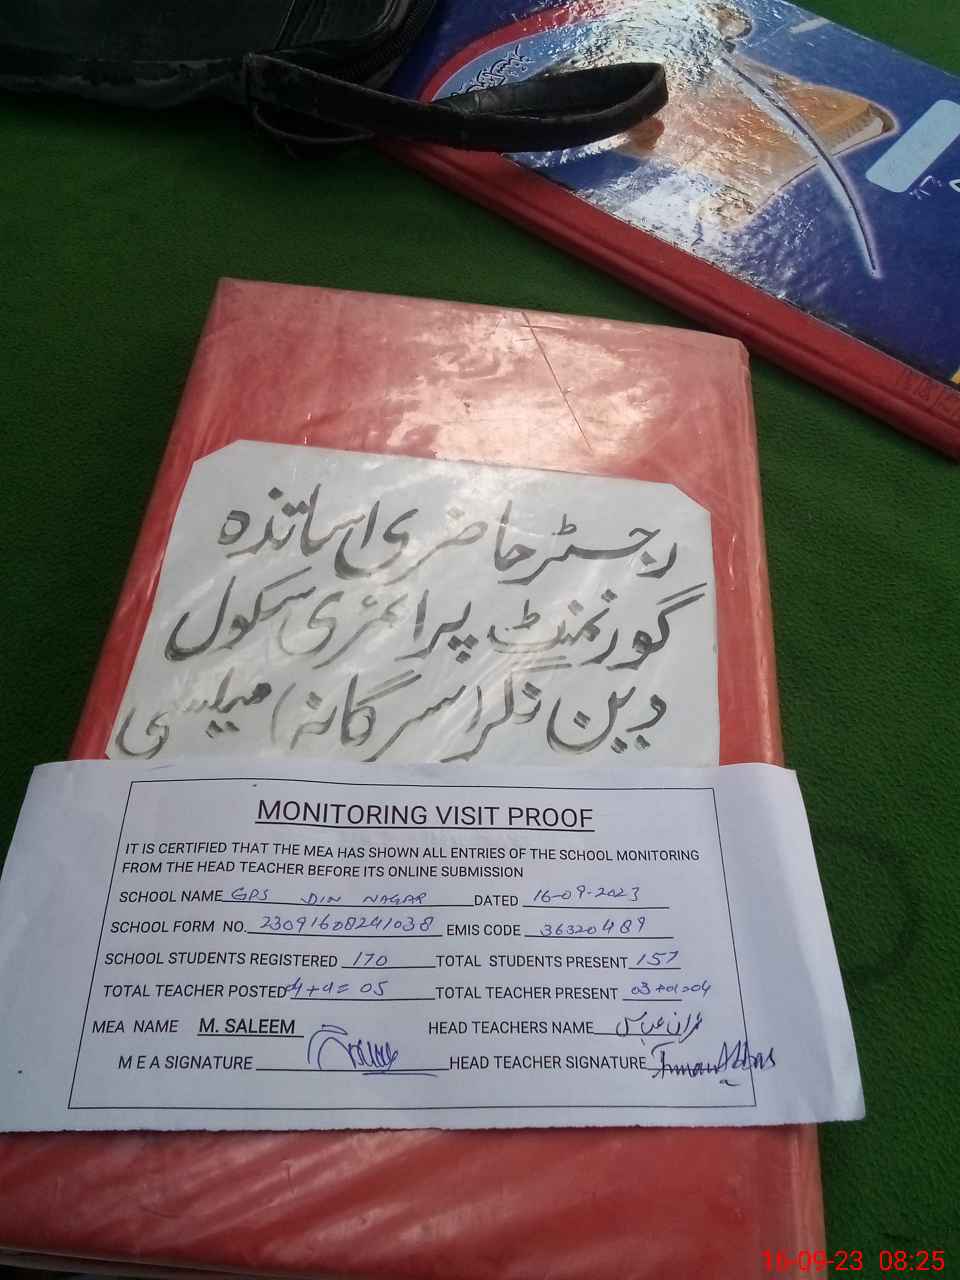 رجسٹر حاضری اساتذہ
گورنمنٹ پرائمری سکول
دین نگر (سرگانہ) میلسی
MONITORING VISIT PROOF
IT IS CERTIFIED THAT THE MEA HAS SHOWN ALL ENTRIES OF THE SCHOOL MONITORING
FROM THE HEAD TEACHER BEFORE ITS ONLINE SUBMISSION
SCHOOL NAME GPS DIN NAGAR DATED 16-09-2023
SCHOOL FORM NO. 23091608241038 EMIS CODE 36320489
SCHOOL STUDENTS REGISTERED 170 TOTAL STUDENTS PRESENT 157
TOTAL TEACHER POSTED 04+01= 05 TOTAL TEACHER PRESENT 03+01=04
MEA NAME M. SALEEM HEAD TEACHERS NAME عباس
MEA SIGNATURE HEAD TEACHER SIGNATURE
16-09-23 08:25